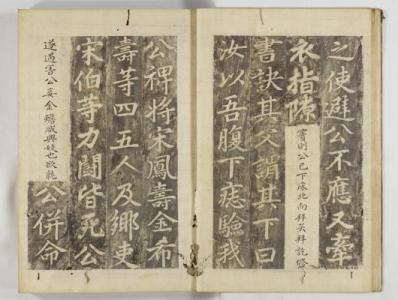 之使避公不應又牽
衣指隙
實則公已下床北向拜英拜訖啓
書訣其父謂其下曰
汝以吾腹下痣驗我
公裨將宋鳳壽金希
壽等四五人及鄉吏
宋伯等力鬪皆死公
遂遇害公妾金蟾咸興妓也
公併命